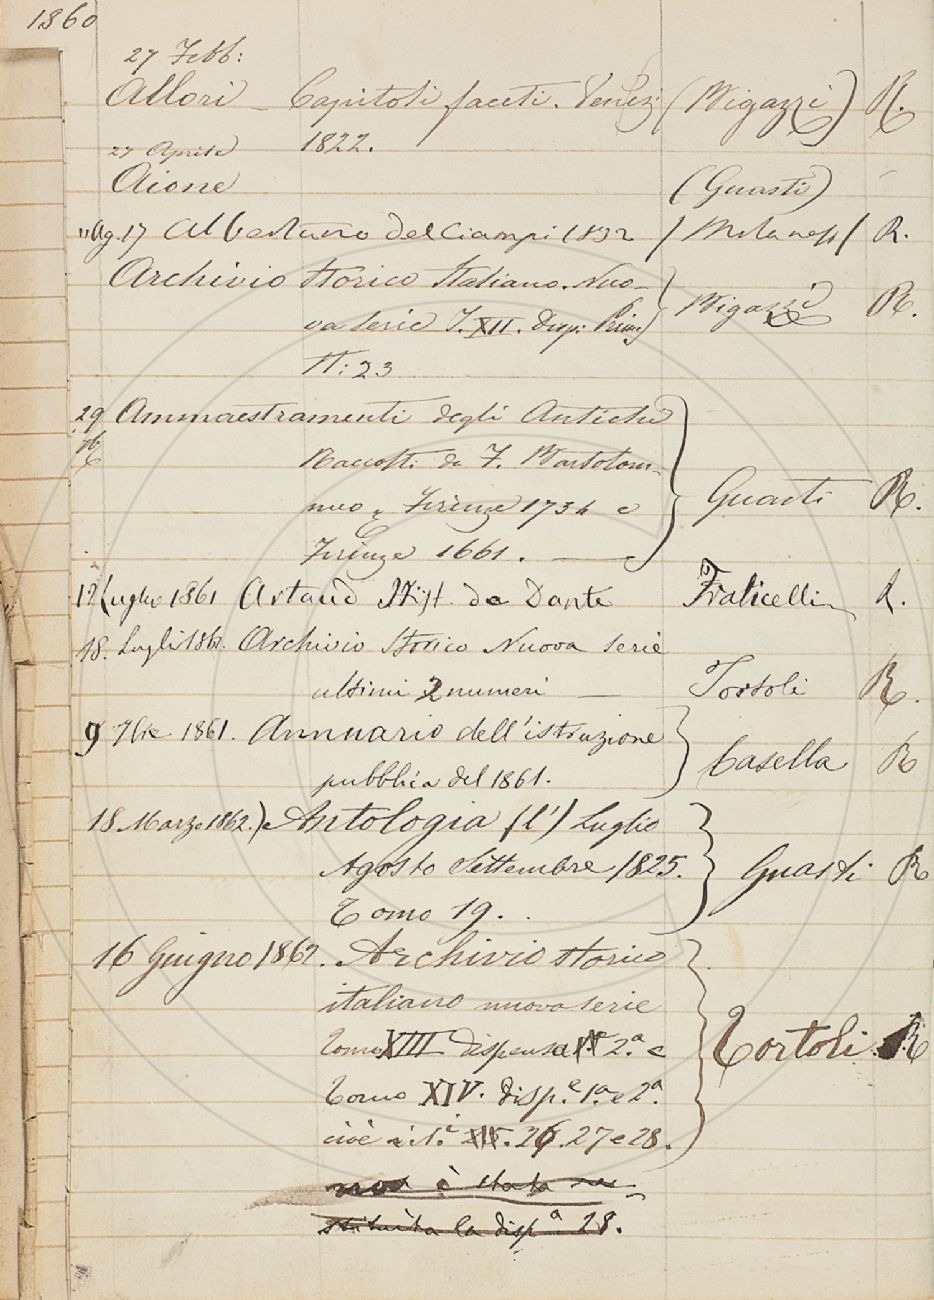 1860
27 Febb:
Allori – Capitoli faceti. Venez: (Bigazzi) R.
1822.
27 Aprile
Aione (Guasti)
"Ag. 17 Albertano del Ciampi 1832 / Milanesi / R.
Archivio Storico Italiano. Nuo-
va Serie T. XII. Disp: Prima } Bigazzi R.
N: 23
29 Ammaestramenti degli Antichi
Raccolti da F. Bartolom-
meo, Firenze 1734 e } Guasti R.
Firenze 1661. —
12 Luglio 1861 Artaud Hist. de Dante Fraticelli R.
18. Luglio 1861. Archivio Storico Nuova Serie
ultimi 2 numeri — Tortoli R.
9 7bre 1861. Annuario dell'istruzione
pubblica del 1861. } Casella R
18 Marzo 1862.) Antologia (l') Luglio
Agosto Settembre 1825. } Guasti R
Tomo 19.
16 Giugno 1862. Archivio storico
italiano nuova serie
Tomo XIII dispensa 2.a e } Tortoli. R
Tomo XIV. disp.e 1.a e 2.a
cioè i 26. 27 e 28.
non è stata re-
stituita la disp.a 28.